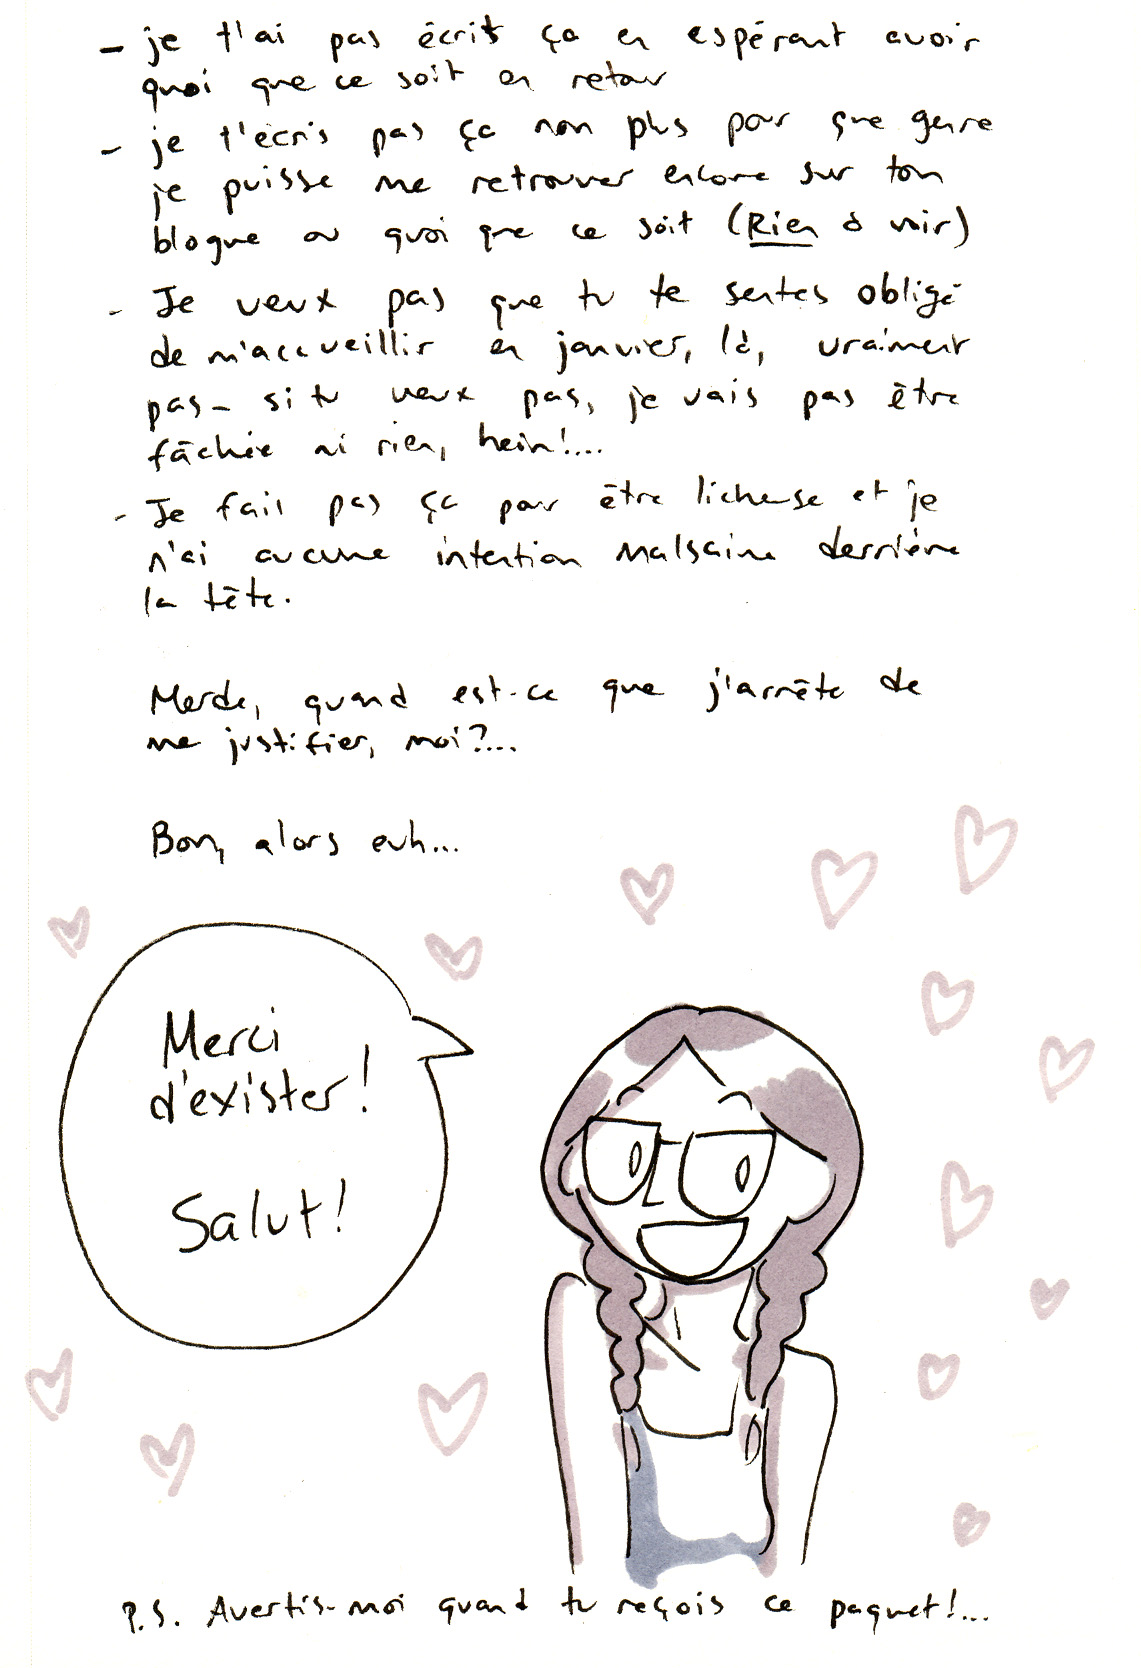 - je t'ai pas écrit ça en espérant avoir
quoi que ce soit en retour
- je t'écris pas ça non plus pour que genre
je puisse me retrouver encore sur ton
blogue ou quoi que ce soit (Rien à voir)
- Je veux pas que tu te sentes obligé
de m'accueillir en janvier, là, vraiment
pas - si tu veux pas, je vais pas être
fâchée ni rien, hein!....
- Je fait pas ça pour être licheuse et je
n'ai aucune intention malsaine derrière
la tête.
Merde, quand est-ce que j'arrête de
me justifier, moi?...
Bon, alors euh...
Merci
d'exister!
Salut!
P.S. Avertis-moi quand tu reçois ce paquet!...